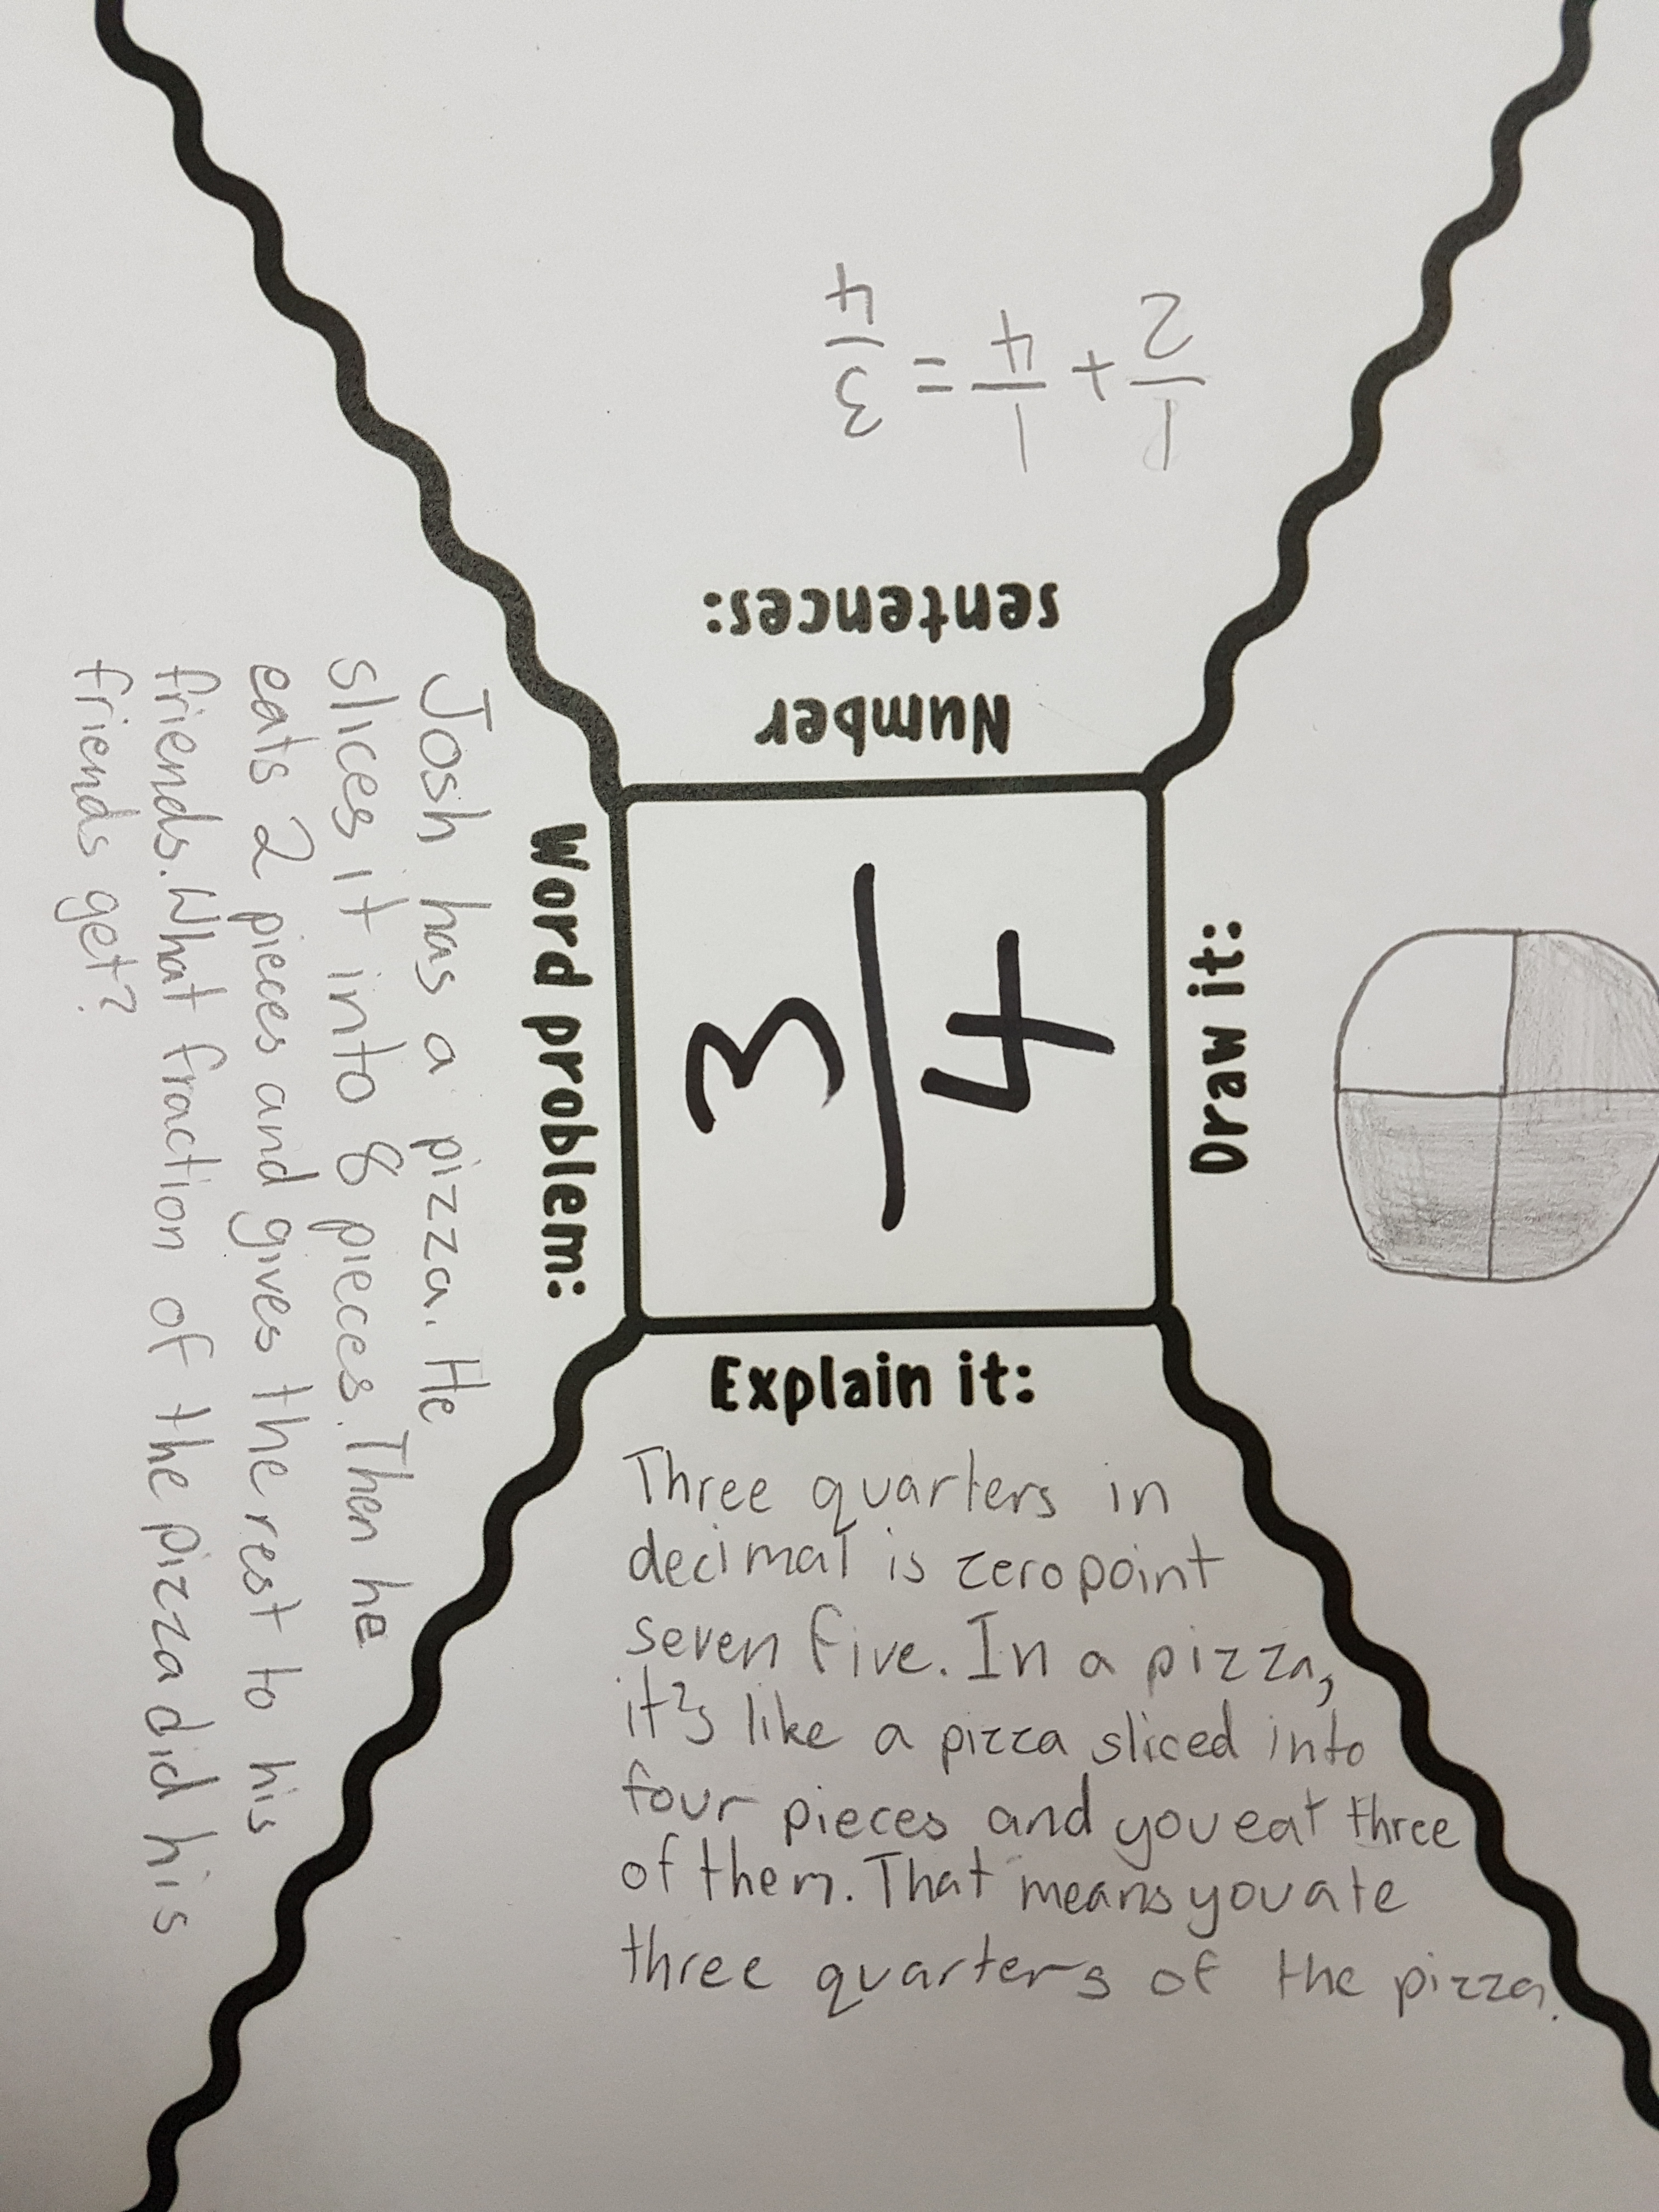 Number
sentences:
1/2 + 1/4 = 3/4
Draw it:
3/4
Word problem:
Josh has a pizza. He
slices it into 8 pieces. Then he
eats 2 pieces and gives the rest to his
friends. What fraction of the pizza did his
friends get?
Explain it:
Three quarters in
decimal is zero point
seven five. In a pizza,
it's like a pizza sliced into
four pieces and you eat three
of them. That means you ate
three quarters of the pizza.